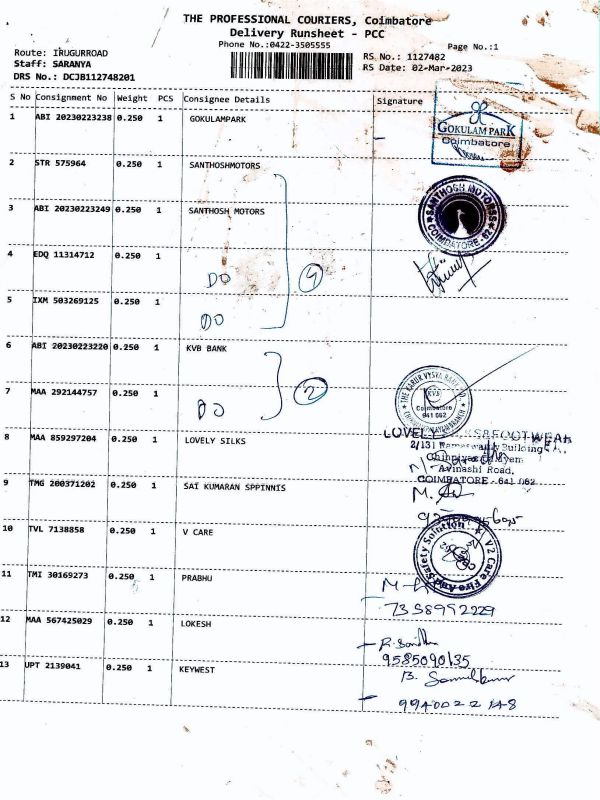 THE PROFESSIONAL COURIERS, Coimbatore
Delivery Runsheet - PCC
Phone No.:0422-3505555
Page No.:1
Route: IRUGURROAD
Staff: SARANYA
DRS No.: DCJB112748201
RS No.: 1127482
RS Date: 02-Mar-2023
S No Consignment No Weight PCS Consignee Details Signature
1 ABI 20230223238 0.250 1 GOKULAMPARK
GOKULAM PARK
Coimbatore
2 STR 575964 0.250 1 SANTHOSHMOTORS
3 ABI 20230223249 0.250 1 SANTHOSH MOTORS
SANTHOSH MOTORSS
COIMBATORE - 62
4 EDQ 11314712 0.250 1 DO
4
5 IXM 503269125 0.250 1 DO
6 ABI 20230223220 0.250 1 KVB BANK
7 MAA 292144757 0.250 1 DO
2
THE KARUR VYSYA BANK LTD
KVB
Coimbatore
641 062
8 MAA 859297204 0.250 1 LOVELY SILKS
2/131 Rameswamy Building
Chinniyampalayam
Avinashi Road,
COIMBATORE - 641 062
9 TMG 200371202 0.250 1 SAI KUMARAN SPPINNIS
10 TVL 7138858 0.250 1 V CARE
V2 Care Fire And Safety Solution
11 TMI 30169273 0.250 1 PRABHU
7358952229
12 MAA 567425029 0.250 1 LOKESH
9585090135
13 UPT 2139041 0.250 1 KEYWEST
9940022148